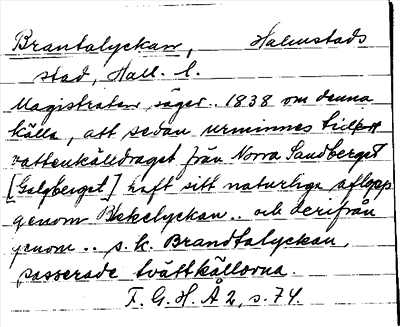 Brantalyckan, Halmstads
stad, Hall. l.
Magistraten säger .. 1838 om denna
källa, att sedan urminnes tid
vattenkälldraget från Norra Sandberget
[Galgberget] haft sitt naturliga aflopp
genom Blekelyckan .. och derifrån
genom .. s. k. Brandtalyckan,
passerade tvättkällorna.
F. G. H. Å 2, s. 74.